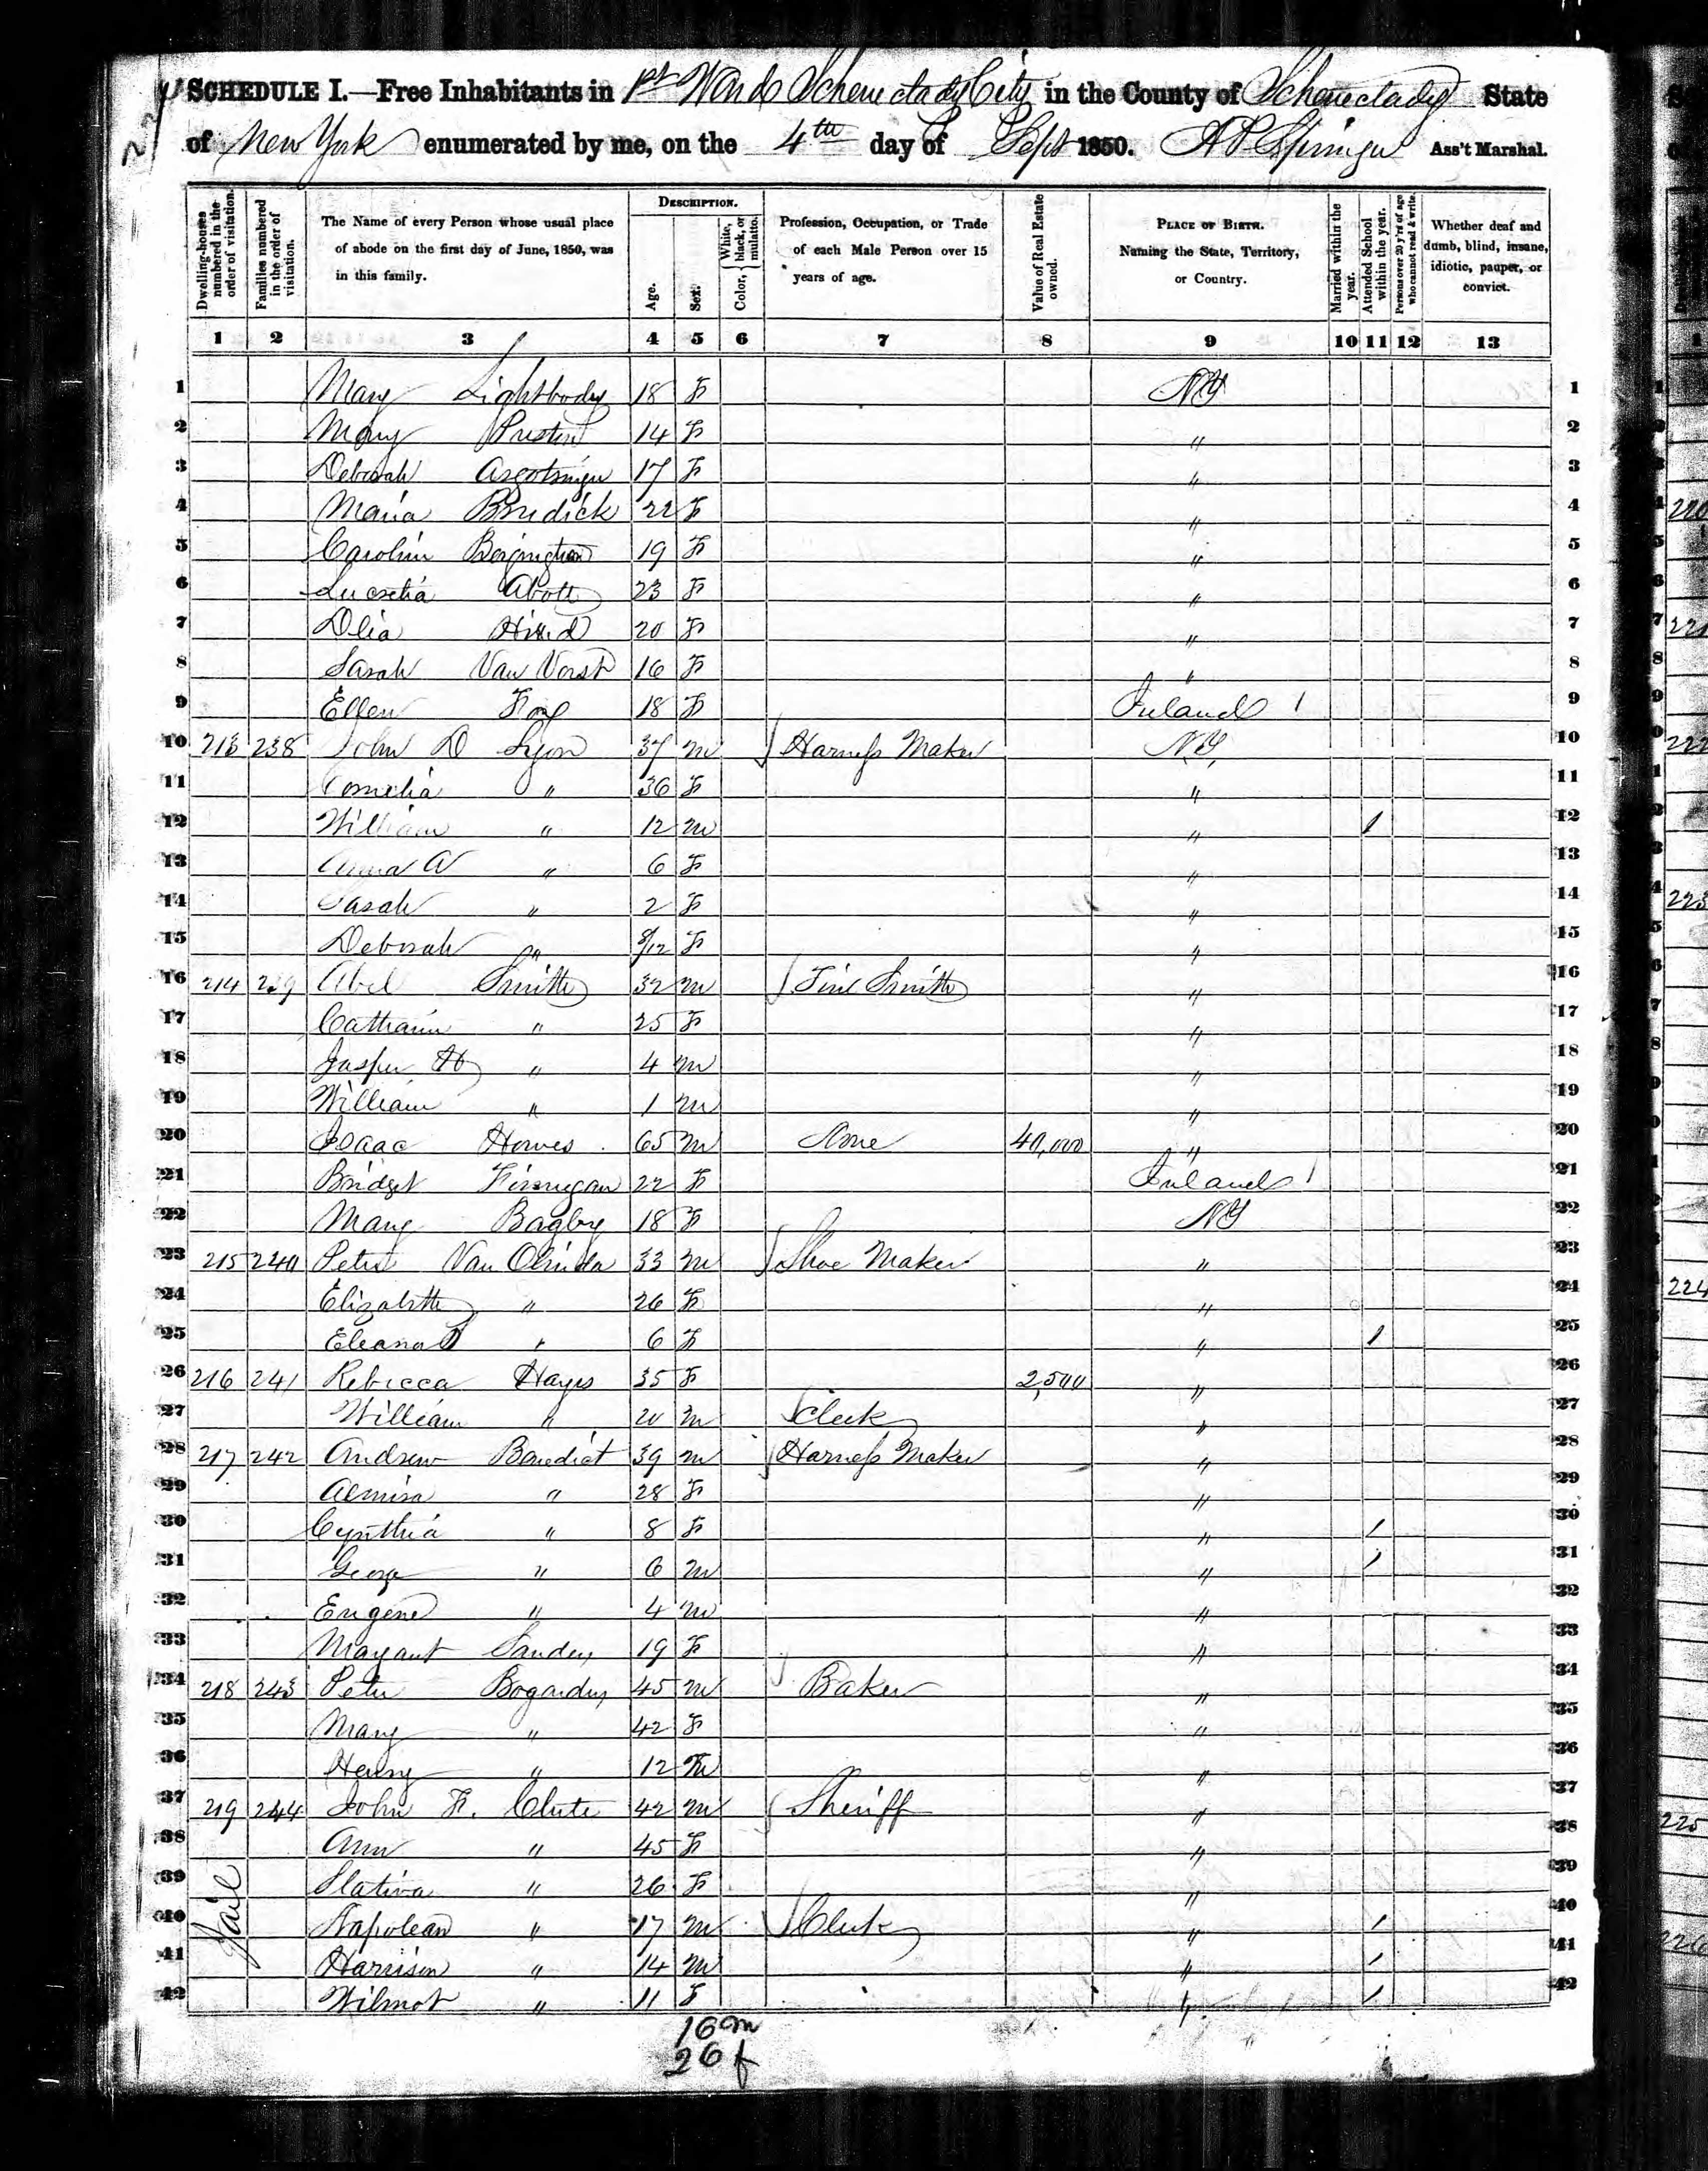 SCHEDULE I.—Free Inhabitants in 1st Ward Schenectady City in the County of Schenectady State
of New York enumerated by me, on the 4th day of Sept 1850. A P Springer Ass't Marshal.
Dwelling-houses numbered in the order of visitation.
Families numbered in the order of visitation.
The Name of every Person whose usual place of abode on the first day of June, 1850, was in this family.
DESCRIPTION.
Age.
Sex.
Color, { White, black, or mulatto.
Profession, Occupation, or Trade of each Male Person over 15 years of age.
Value of Real Estate owned.
PLACE OF BIRTH. Naming the State, Territory, or Country.
Married within the year.
Attended School within the year.
Persons over 20 y'rs of age who cannot read & write.
Whether deaf and dumb, blind, insane, idiotic, pauper, or convict.
1 2 3 4 5 6 7 8 9 10 11 12 13
1 Mary Lightbody 18 F NY 1
2 Mary Preston 14 F " 2
3 Deborah 17 F " 3
4 Maria 22 F " 4
5 Carolin 19 F " 5
6 Lucretia Abott 23 F " 6
7 Delia 20 F " 7
8 Sarah Van Vorst 16 F " 8
9 Ellen Foy 18 F Ireland 1 9
10 213 238 John D Lyon 37 M Harness Maker N.Y. 10
11 Cornelia " 36 F " 11
12 William " 12 M " 1 12
13 Anna A " 6 F " 13
14 Sarah " 2 F " 14
15 Deborah " 8/12 F " 15
16 214 239 Abel Smith 32 M Tin Smith " 16
17 Catharin " 25 F " 17
18 Jasper H " 4 M " 18
19 William " 1 M " 19
20 Isaac Howes 65 M None 40,000 " 20
21 Bridget Finnegan 22 F Ireland 1 21
22 Mary Bagby 18 F NY 22
23 215 240 Peter Van Olinda 33 M Shoe Maker " 23
24 Elizabeth " 26 F " 24
25 Eleanor " 6 F " 1 25
26 216 241 Rebecca Hayes 35 F 2,500 " 26
27 William " 20 M Clerk " 27
28 217 242 Andrew Benedict 39 M Harness Maker " 28
29 Almira " 28 F " 29
30 Cynthia " 8 F " 1 30
31 George " 6 M " 1 31
32 Eugene " 4 M " 32
33 Margaret Sanders 19 F " 33
34 218 243 Peter Bogardus 45 M Baker " 34
35 Mary " 42 F " 35
36 Henry " 12 M " 36
37 219 244 John F. Clute 42 M Sheriff " 37
38 Ann " 45 F " 38
39 Jail " 26 F " 39
40 Napolean " 17 M Clerk " 1 40
41 Harrison " 14 M " 1 41
42 Wilmot " 11 F " 1 42
16 m
26 f